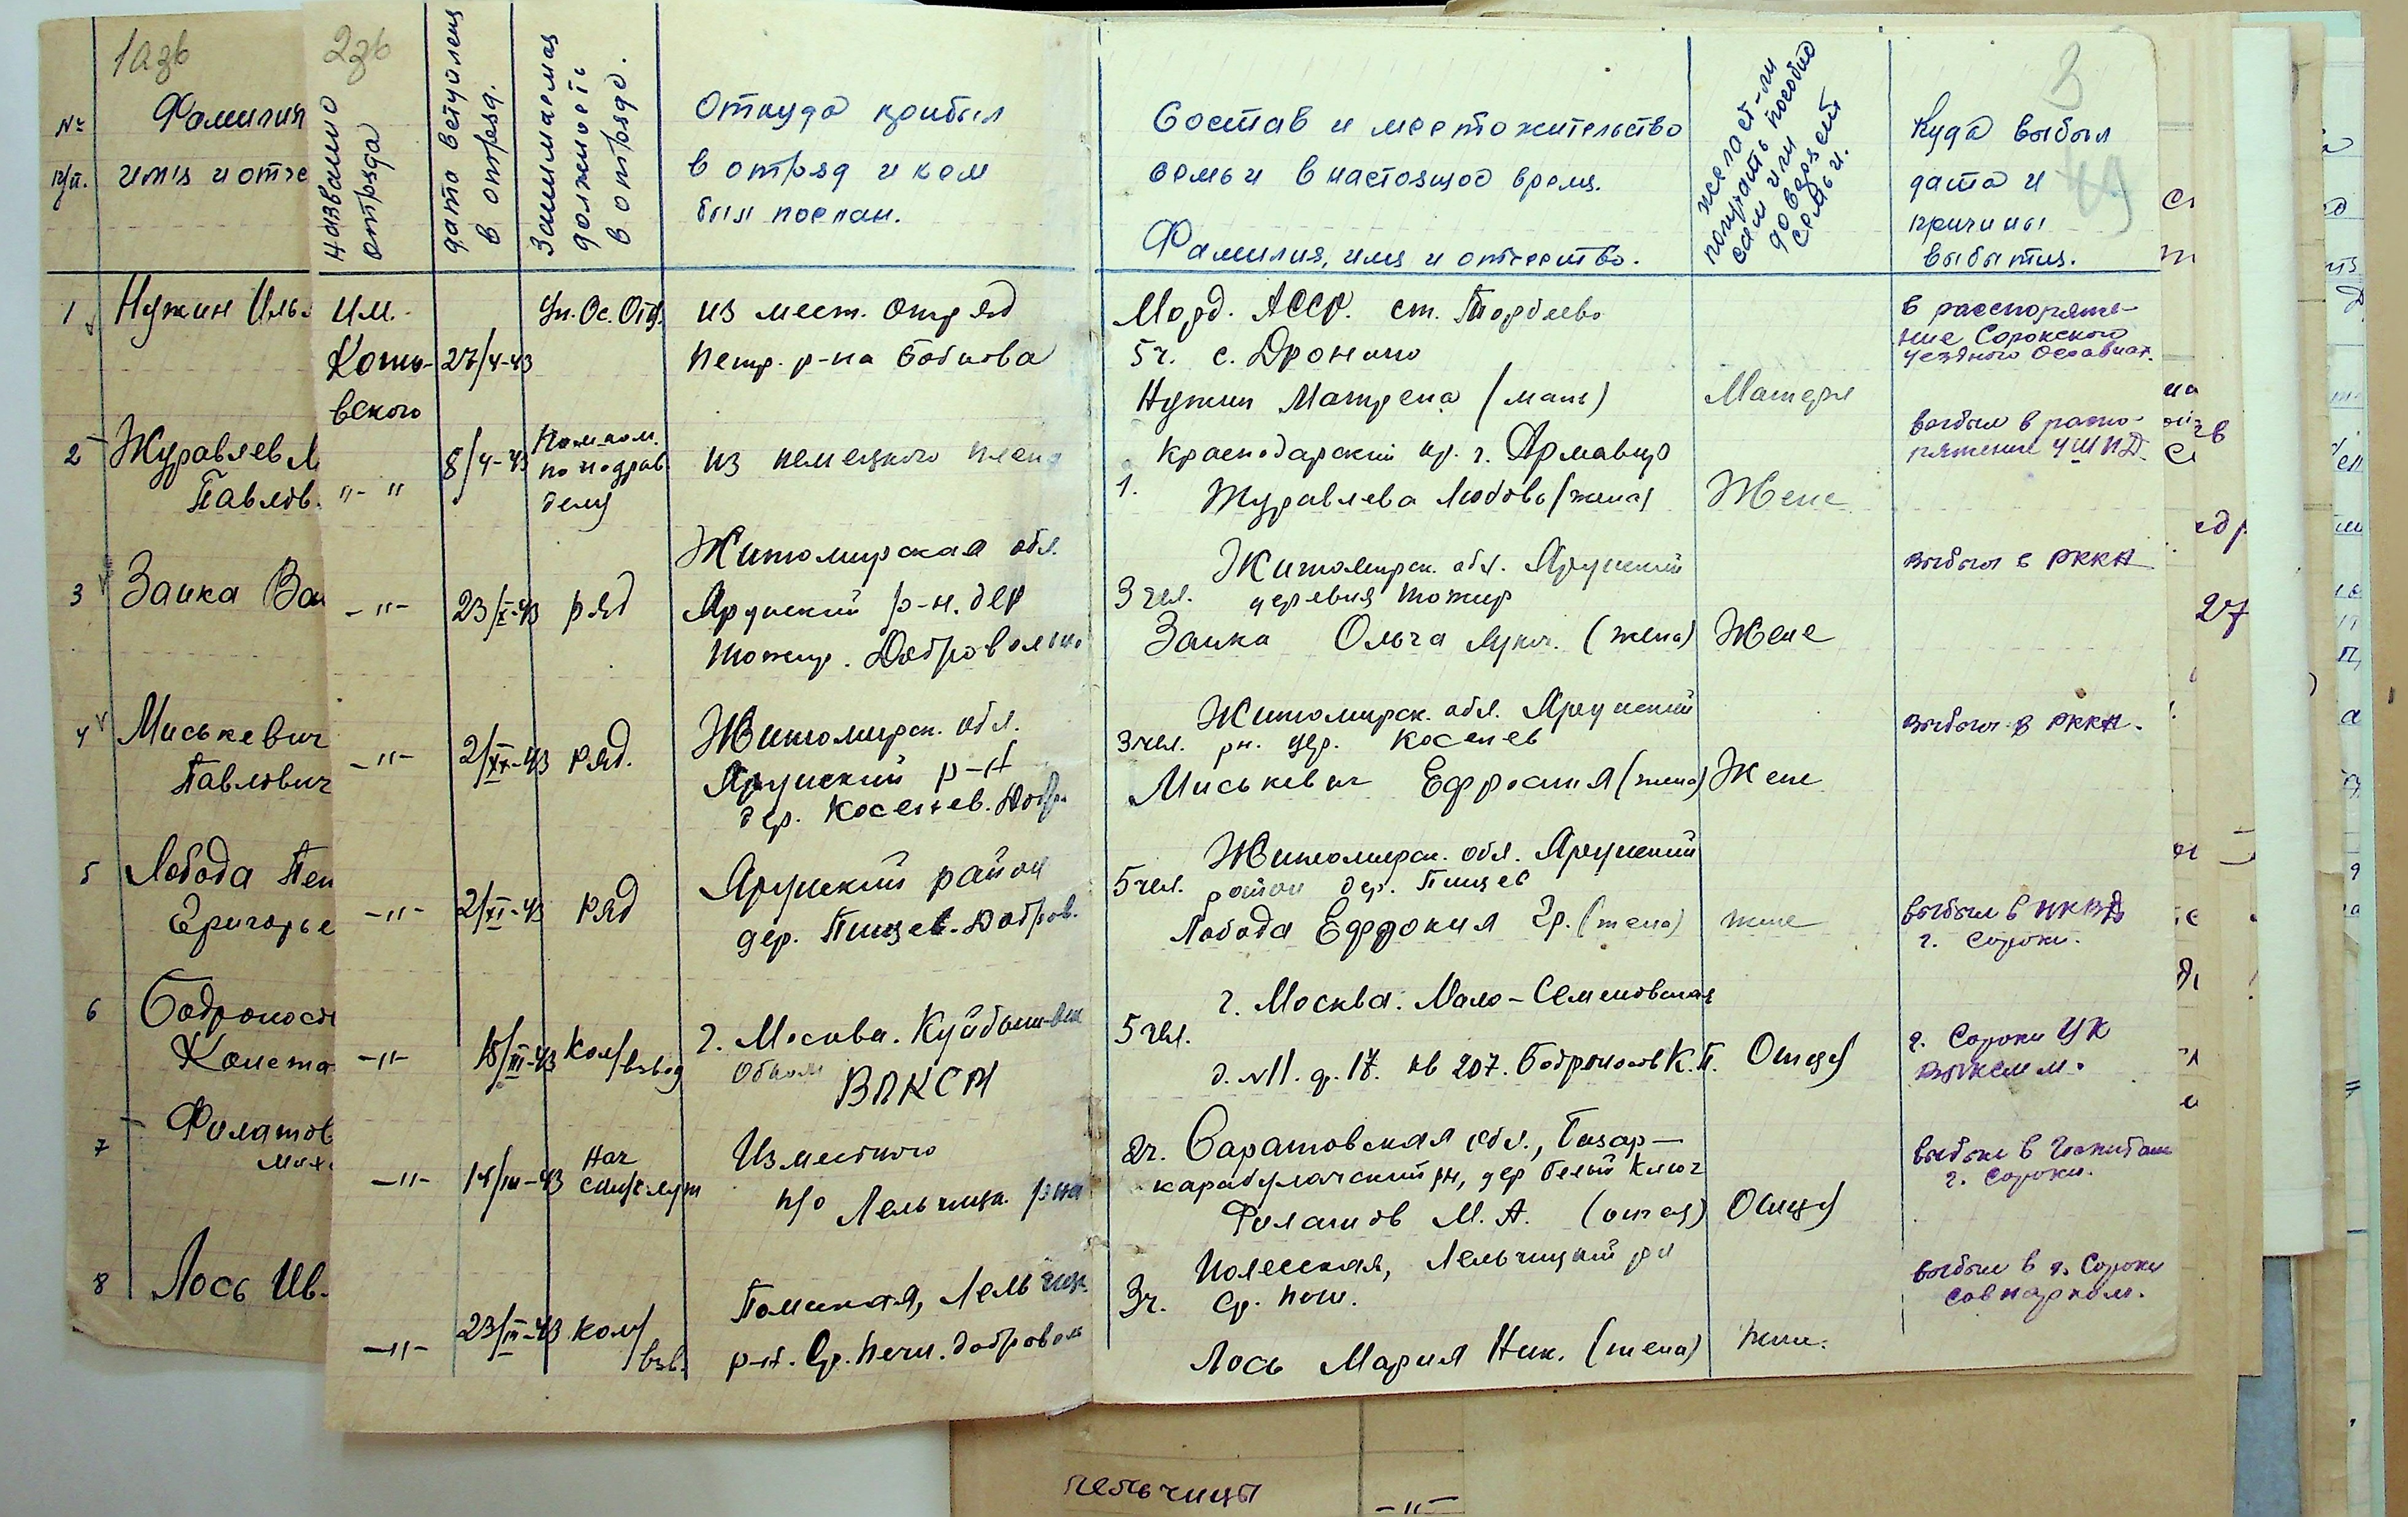 1азв
2зв
3
49
№
п/п.
Фамилия
имя и отче
название
отряда
дата вступления
в отряд.
Занимаемая
должность
в отряде.
Откуда прибыл
в отряд и кем
был послан.
Состав и местожительство
семьи в настоящее время.
Фамилия, имя и отчество.
желает-ли
получать пособие
сам или
доверяет
семьи.
Куда выбыл
дата и
причины
выбытия.
1 Нужин Иль
Им.
Кото-
вского
27/4-43
Уп. Ос. Отд.
из мест. отряд
Петр. р-на Бобкова
Морд. АССР. ст. Торбеево
5 ч. с. Дронино
Нужин Матрена (мать)
Матери
в распоряже-
ние Сорокского
уездного Осоавиах.
2 Журавлев
Павлов.
"-"
8/4-43
Пом. ком.
по подрыв
делу
из немецкого плена
Краснодарский кр. г. Армавир
1. Журавлева Любовь (жена)
Жене
выбыл в распо-
ряжение УШПД.
3 Заика
-"-
23/X-43
ряд
Житомирская обл.
Ярунский р-н. дер
Тожир. Добровольно
Житомирск. обл. Ярунский
3 чел. деревня Тожир
Заика Ольга Лукн. (жена)
Жене
выбыл в РККА
4 Миськевич
Павлович
-"-
2/XI-43
ряд.
Житомирск. обл.
Ярунский р-н
дер. Косенев. Добр.
Житомирск. обл. Ярунский
3 чел. рн. дер. Косенев
Миськевич Ефросиния (жена)
Жене
выбыл в РККА.
5 Лобода
Григорье
-"-
2/XI-43
ряд
Ярунский район
дер. Пищев. Добров.
Житомирск. обл. Ярунский
5 чел. район дер. Пищев
Лобода Евдокия Гр. (жена)
жене
выбыл в НКВД
г. Сороки.
6 Бодроносо
Конста
-"-
15/III-43
ком/взвод
г. Москва. Куйбышевск
Обком
ВЛКСМ
г. Москва. Мало-Семеновская
5 чел.
д. №11. д. 17. кв 207. Бодроносов К. П.
Отцу
г. Сороки УК
ВЛКСМ.
7 Филатов
Мих
-"-
15/III-43
Нач
Из местного
п/о Лельчицк. р-на
2 ч. Саратовская обл., Базар-
карабулакский рн, дер Белый Ключ
Филатов М. А. (отец)
Отцу
выбыл в Госпиталь
г. Сороки.
8 Лось Ив.
-"-
23/III-43
ком/
взв.
Полесская, Лельчиц.
р-н. Ср. Печи. добровол
Полесская, Лельчицкий рн
3 ч. Ср. Печи.
Лось Мария Ник. (жена)
жене.
выбыл в г. Сороки
совнарком.
27
лельчицы
-"-